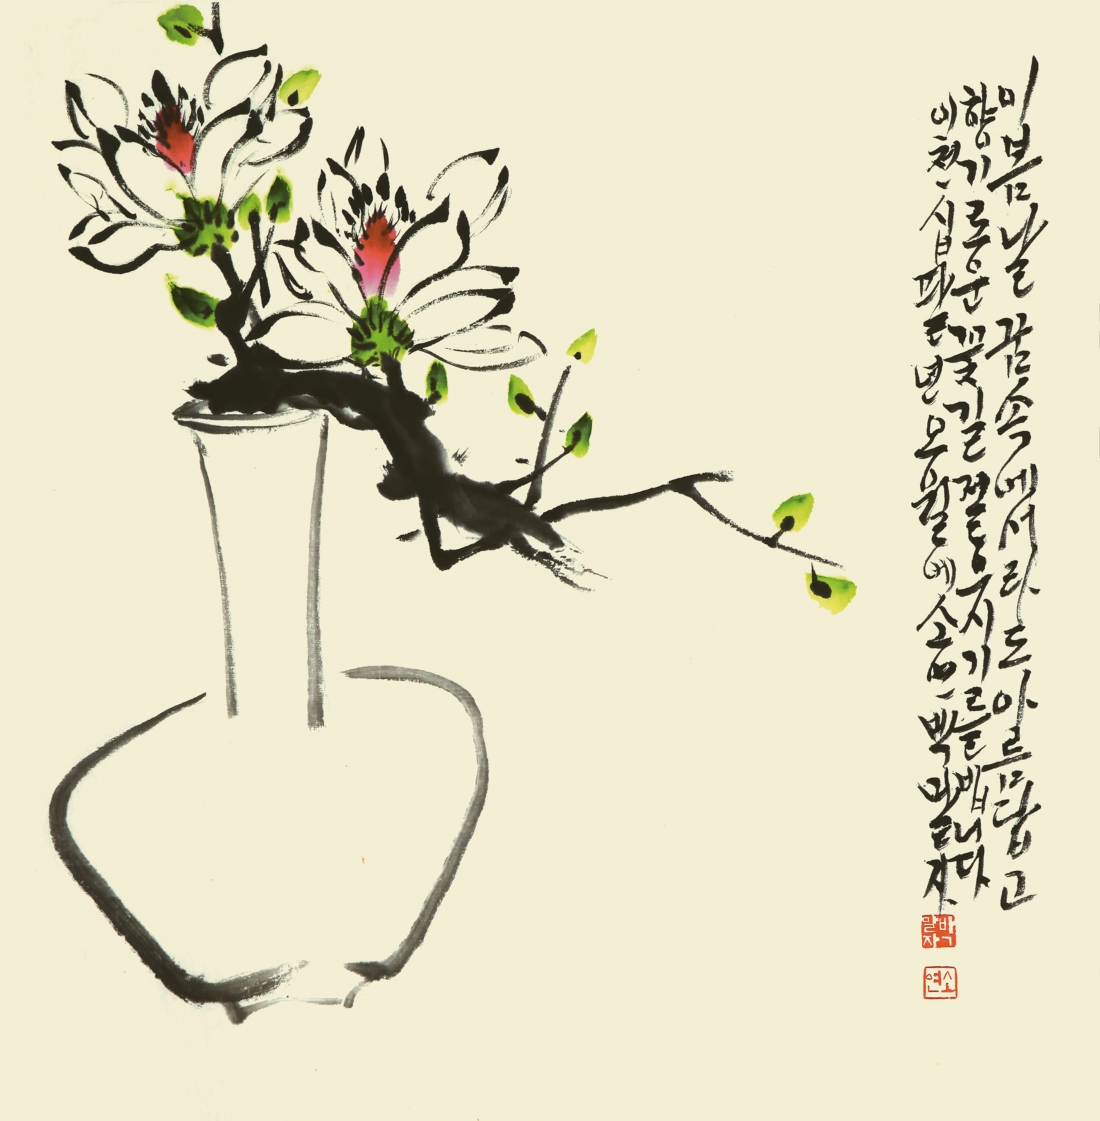 이 봄날 꿈속에서라도 아름답고
향기로운 꽃길 걸으시기를 빕니다
이천십팔년 오월에 소연 박말자
박말자
소연